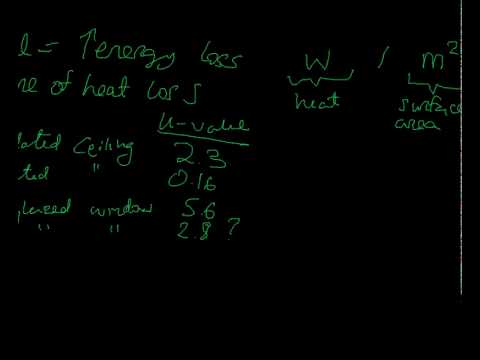 l = ↑ energy loss
re of heat loss
W / m²
heat surface area
U-value
lated Ceiling 2.3
ted " 0.16
glazed window 5.6
" " 2.8 ?